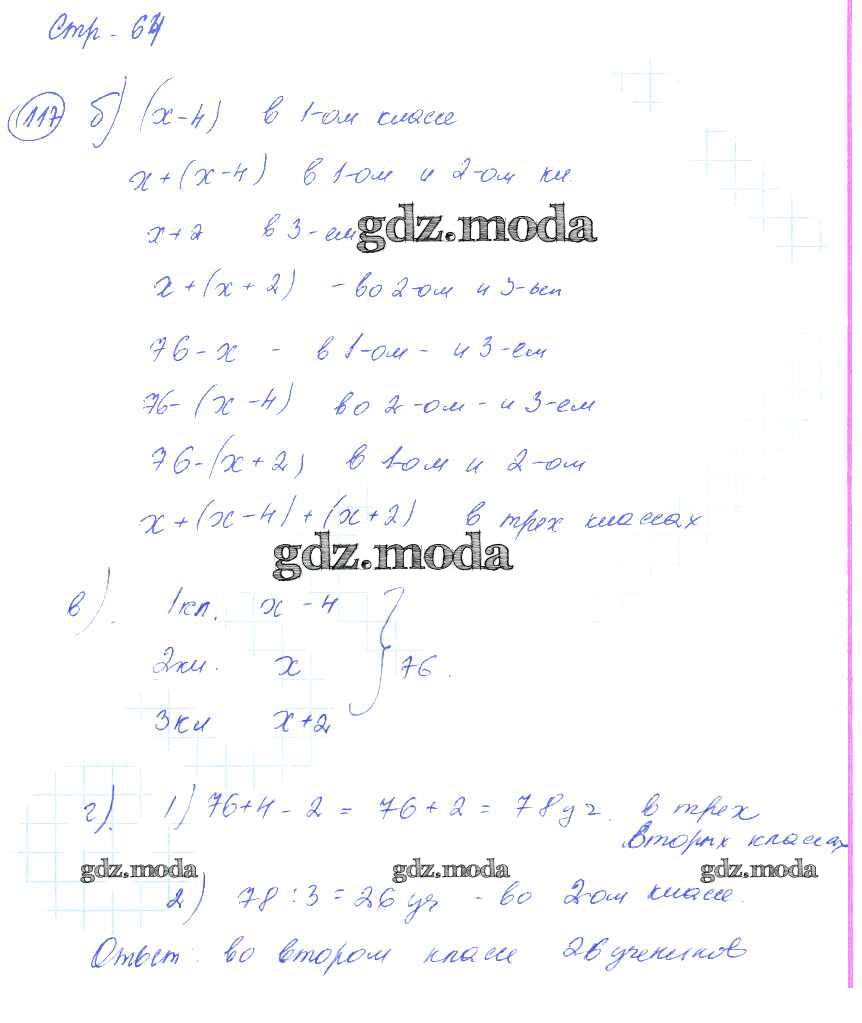 Стр - 64
117 б) (x-4) в 1-ом классе
x+(x-4) в 1-ом и 2-ом кл.
x+2 в 3-ем gdz.moda
x+(x+2) - во 2-ом и 3-ем
76-x - в 1-ом - и 3-ем
76-(x-4) во 2-ом - и 3-ем
76-(x+2) в 1-ом и 2-ом
x+(x-4)+(x+2) в трех классах
gdz.moda
в). 1кл. x-4
2кл. x } 76.
3кл x+2
г). 1) 76+4-2 = 76+2 = 78уч. в трех
вторых классах
gdz.moda gdz.moda gdz.moda
2) 78:3=26 уч - во 2-ом классе.
Ответ: во втором классе 26 учеников